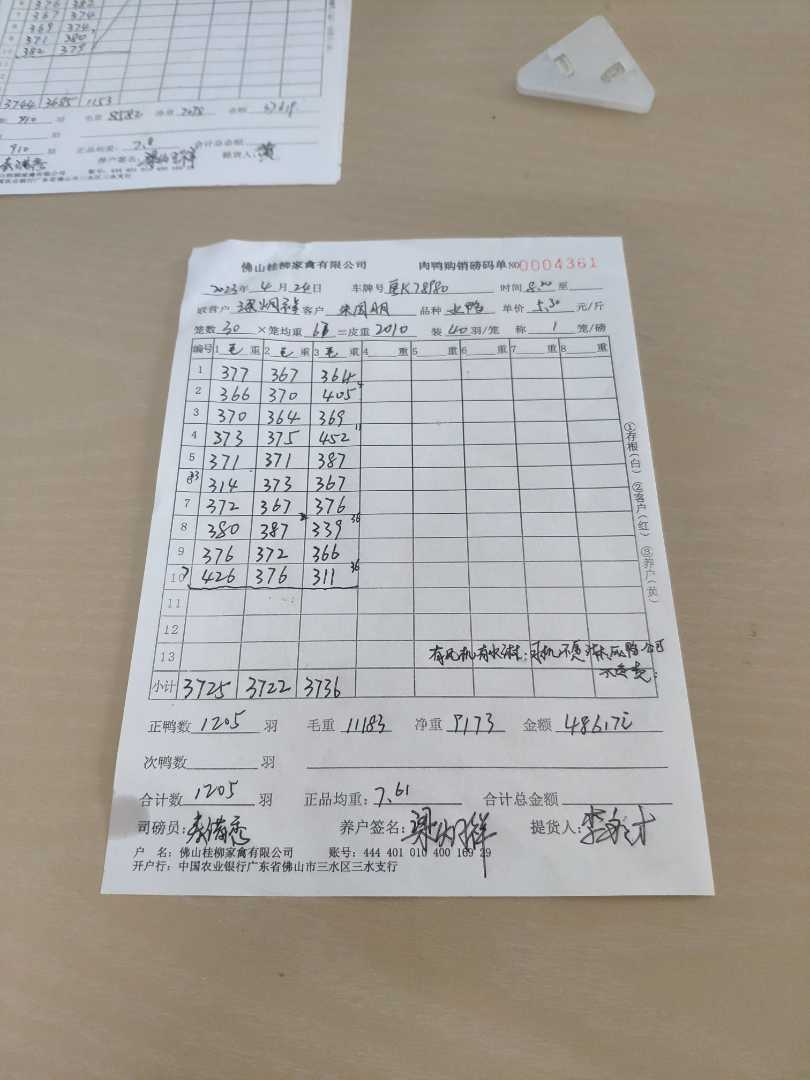 6 376 382
7 367 374
8 369 374
9 371 380
10 382 379
11
12
13
3744 3685 1153
910 羽 毛重 8582 净重 金额
羽
910 羽 正品均重: 7.8 合计总金额
养户签名: 提货人: 黄
佛山桂柳家禽有限公司 肉鸭购销磅码单 NO 0004361
2023年 4 月 24日 车牌号 粤K78980 时间 8:20 至
收货户 客户 朱国明 品种 水鸭 单价 5.30 元/斤
笼数 30 ×笼均重 67 =皮重 2010 装 40 羽/笼 称 1 笼/磅
编号 1 毛 重 2 毛 重 3 毛 重 4 重 5 重 6 重 7 重 8 重
1 377 367 364
2 366 370 405
3 370 364 369
4 373 375 452
5 371 371 387
6 33 314 373 367
7 372 367 376
8 380 387 339 36
9 376 372 366
10 426 376 311 36
11
12
13
小计 3725 3722 3736
①存根(白) ②客户(红) ③养户(黄)
正鸭数 1205 羽 毛重 11183 净重 9173 金额 48617元
次鸭数 羽
合计数 1205 羽 正品均重: 7.61 合计总金额
司磅员: 养户签名: 梁炳祥 提货人:
户 名: 佛山桂柳家禽有限公司 账号: 444 401 010 400 169 29
开户行: 中国农业银行广东省佛山市三水区三水支行